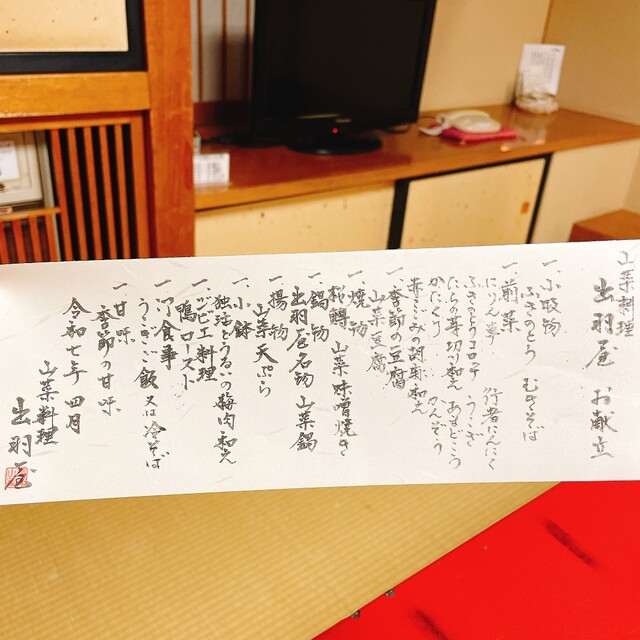 山菜料理
出羽屋 お献立
一、小吸物
ふきのとう むきそば
一、前菜
にりん草 行者にんにく
ふきのとうコロッケ うこぎ
たらの芽切り和え あまどころ
かたくり かんぞう
赤こごみの胡麻和え
一、季節の豆腐
山菜豆腐
一、焼物
桜鱒 山菜味噌焼き
一、鍋物
出羽屋名物 山菜鍋
一、揚物
山菜天ぷら
一、小鉢
独活とうるいの梅肉和え
一、ジビエ料理
鴨ロースト
一、御食事
うこぎご飯 又は 冷そば
一、甘味
季節の甘味
令和七年 四月
山菜料理
出羽屋